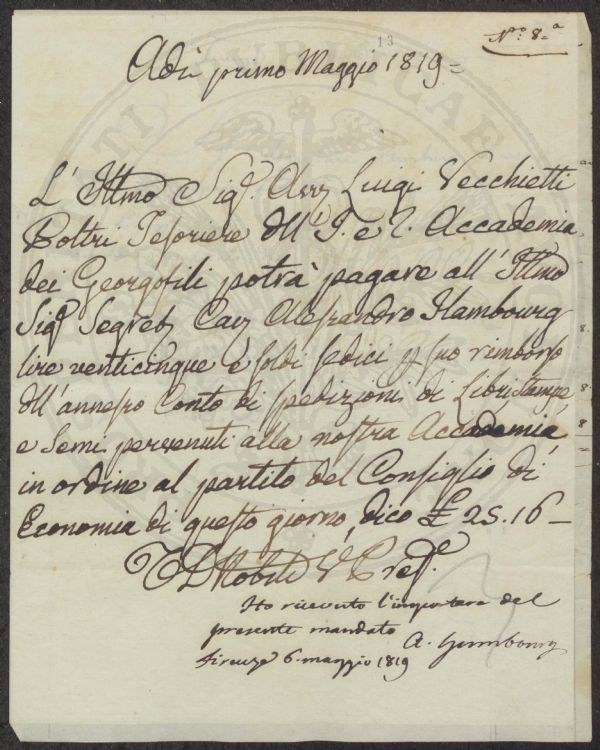 13
N.º 8.ª
Adì primo Maggio 1819=
L' Illmo Sigr. Cav. Luigi Vecchietti
Poltri Tesoriere dll' I. e R. Accademia
dei Georgofili potrà pagare all' Illmo
Sigr Segret. Cav. Alessandro Humbourg
lire venticinque e soldi sedici p suo rimborso
dll'annesso Conto di spedizioni di Libri stampe,
e Semi pervenuti alla nostra Accademia,
in ordine al partito del Consiglio di
Economia di questo giorno, dico £ 25.16 —
Nobili V. Pres.e
Ho ricevuto l'importare del
presente mandato
A. Humbourg
Firenze 6. maggio 1819